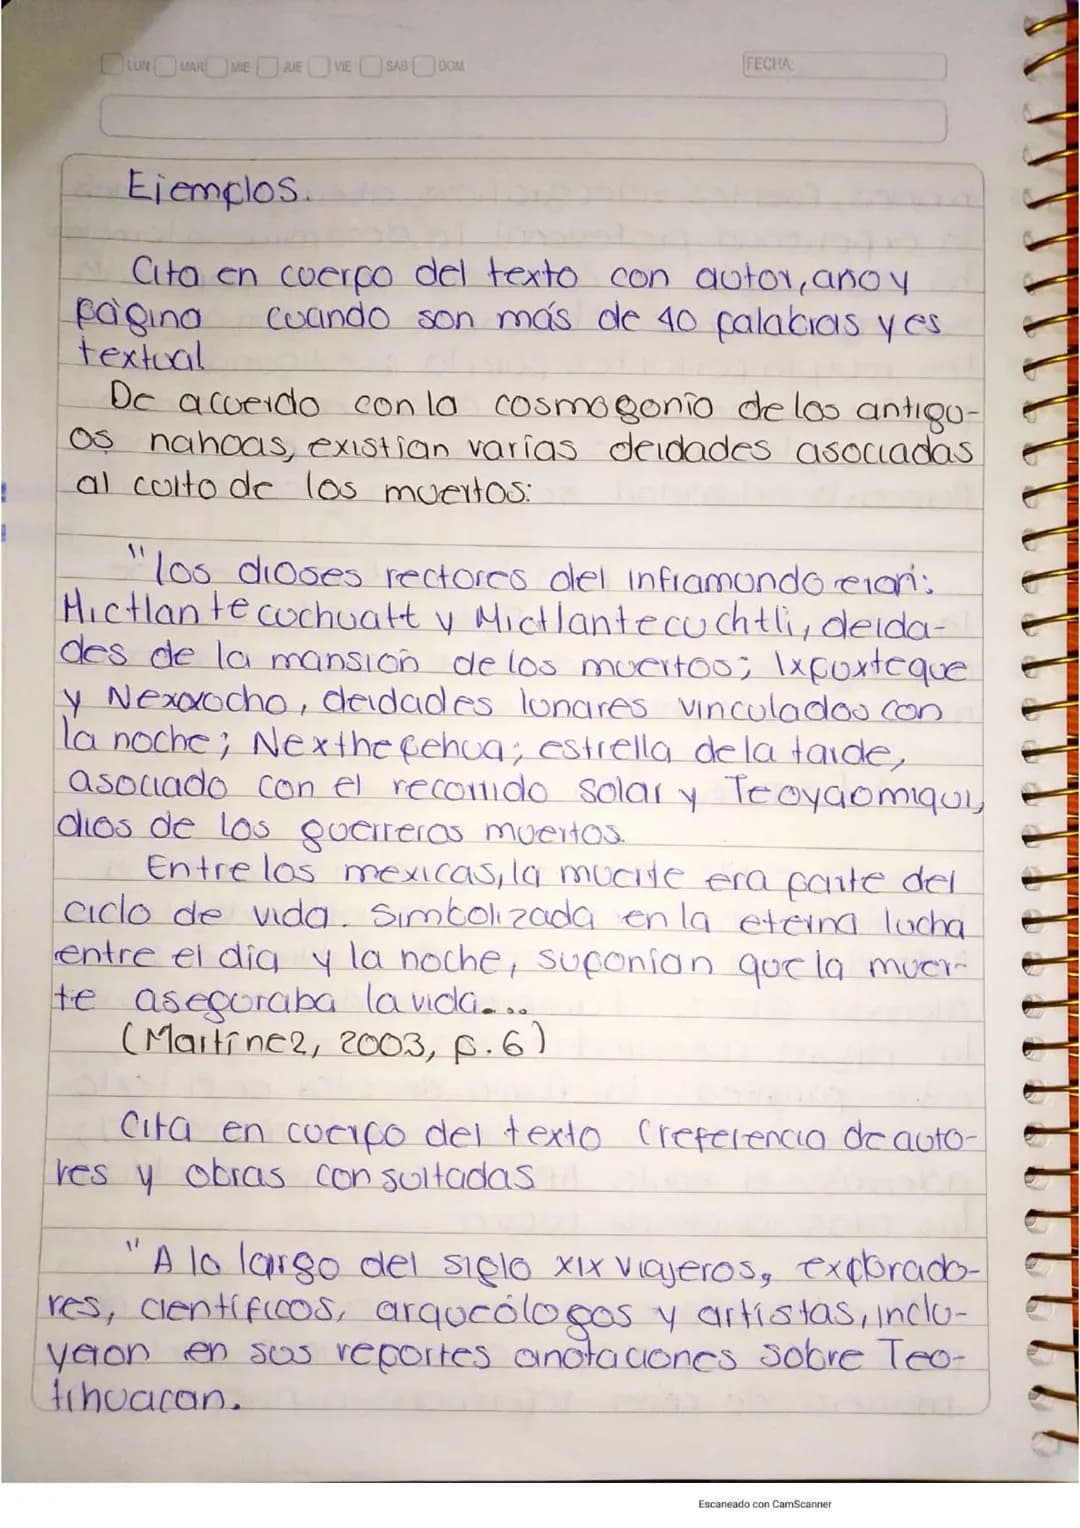 LUN MAR MIE JUE VIE SAB DOM
FECHA:
Ejemplos.
Cita en cuerpo del texto con autor, año y
página cuando son más de 40 palabras y es
textual
De acuerdo con la cosmogonía de los antigu-
os nahoas, existían varias deidades asociadas
al culto de los muertos:
"los dioses rectores del inframundo eran:
Mictlantecuchuatt y Mictlantecuchtli, deida-
des de la mansión de los muertos; Ixpuxteque
y Nexoxocho, deidades lunares vinculados con
la noche; Nexthepehua; estrella de la tarde,
asociado con el recorrido solar y Teoyaomiqui,
dios de los guerreros muertos.
Entre los mexicas, la muerte era parte del
ciclo de vida. Simbolizada en la eterna lucha
entre el día y la noche, suponían que la muer-
te aseguraba la vida...
(Martínez, 2003, p. 6)
Cita en cuerpo del texto (referencia de auto-
res y obras consultadas
"A lo largo del siglo XIX viajeros, explorado-
res, científicos, arqueólogos y artistas, inclu-
yeron en sus reportes anotaciones sobre Teo-
tihuacan.
Escaneado con CamScanner